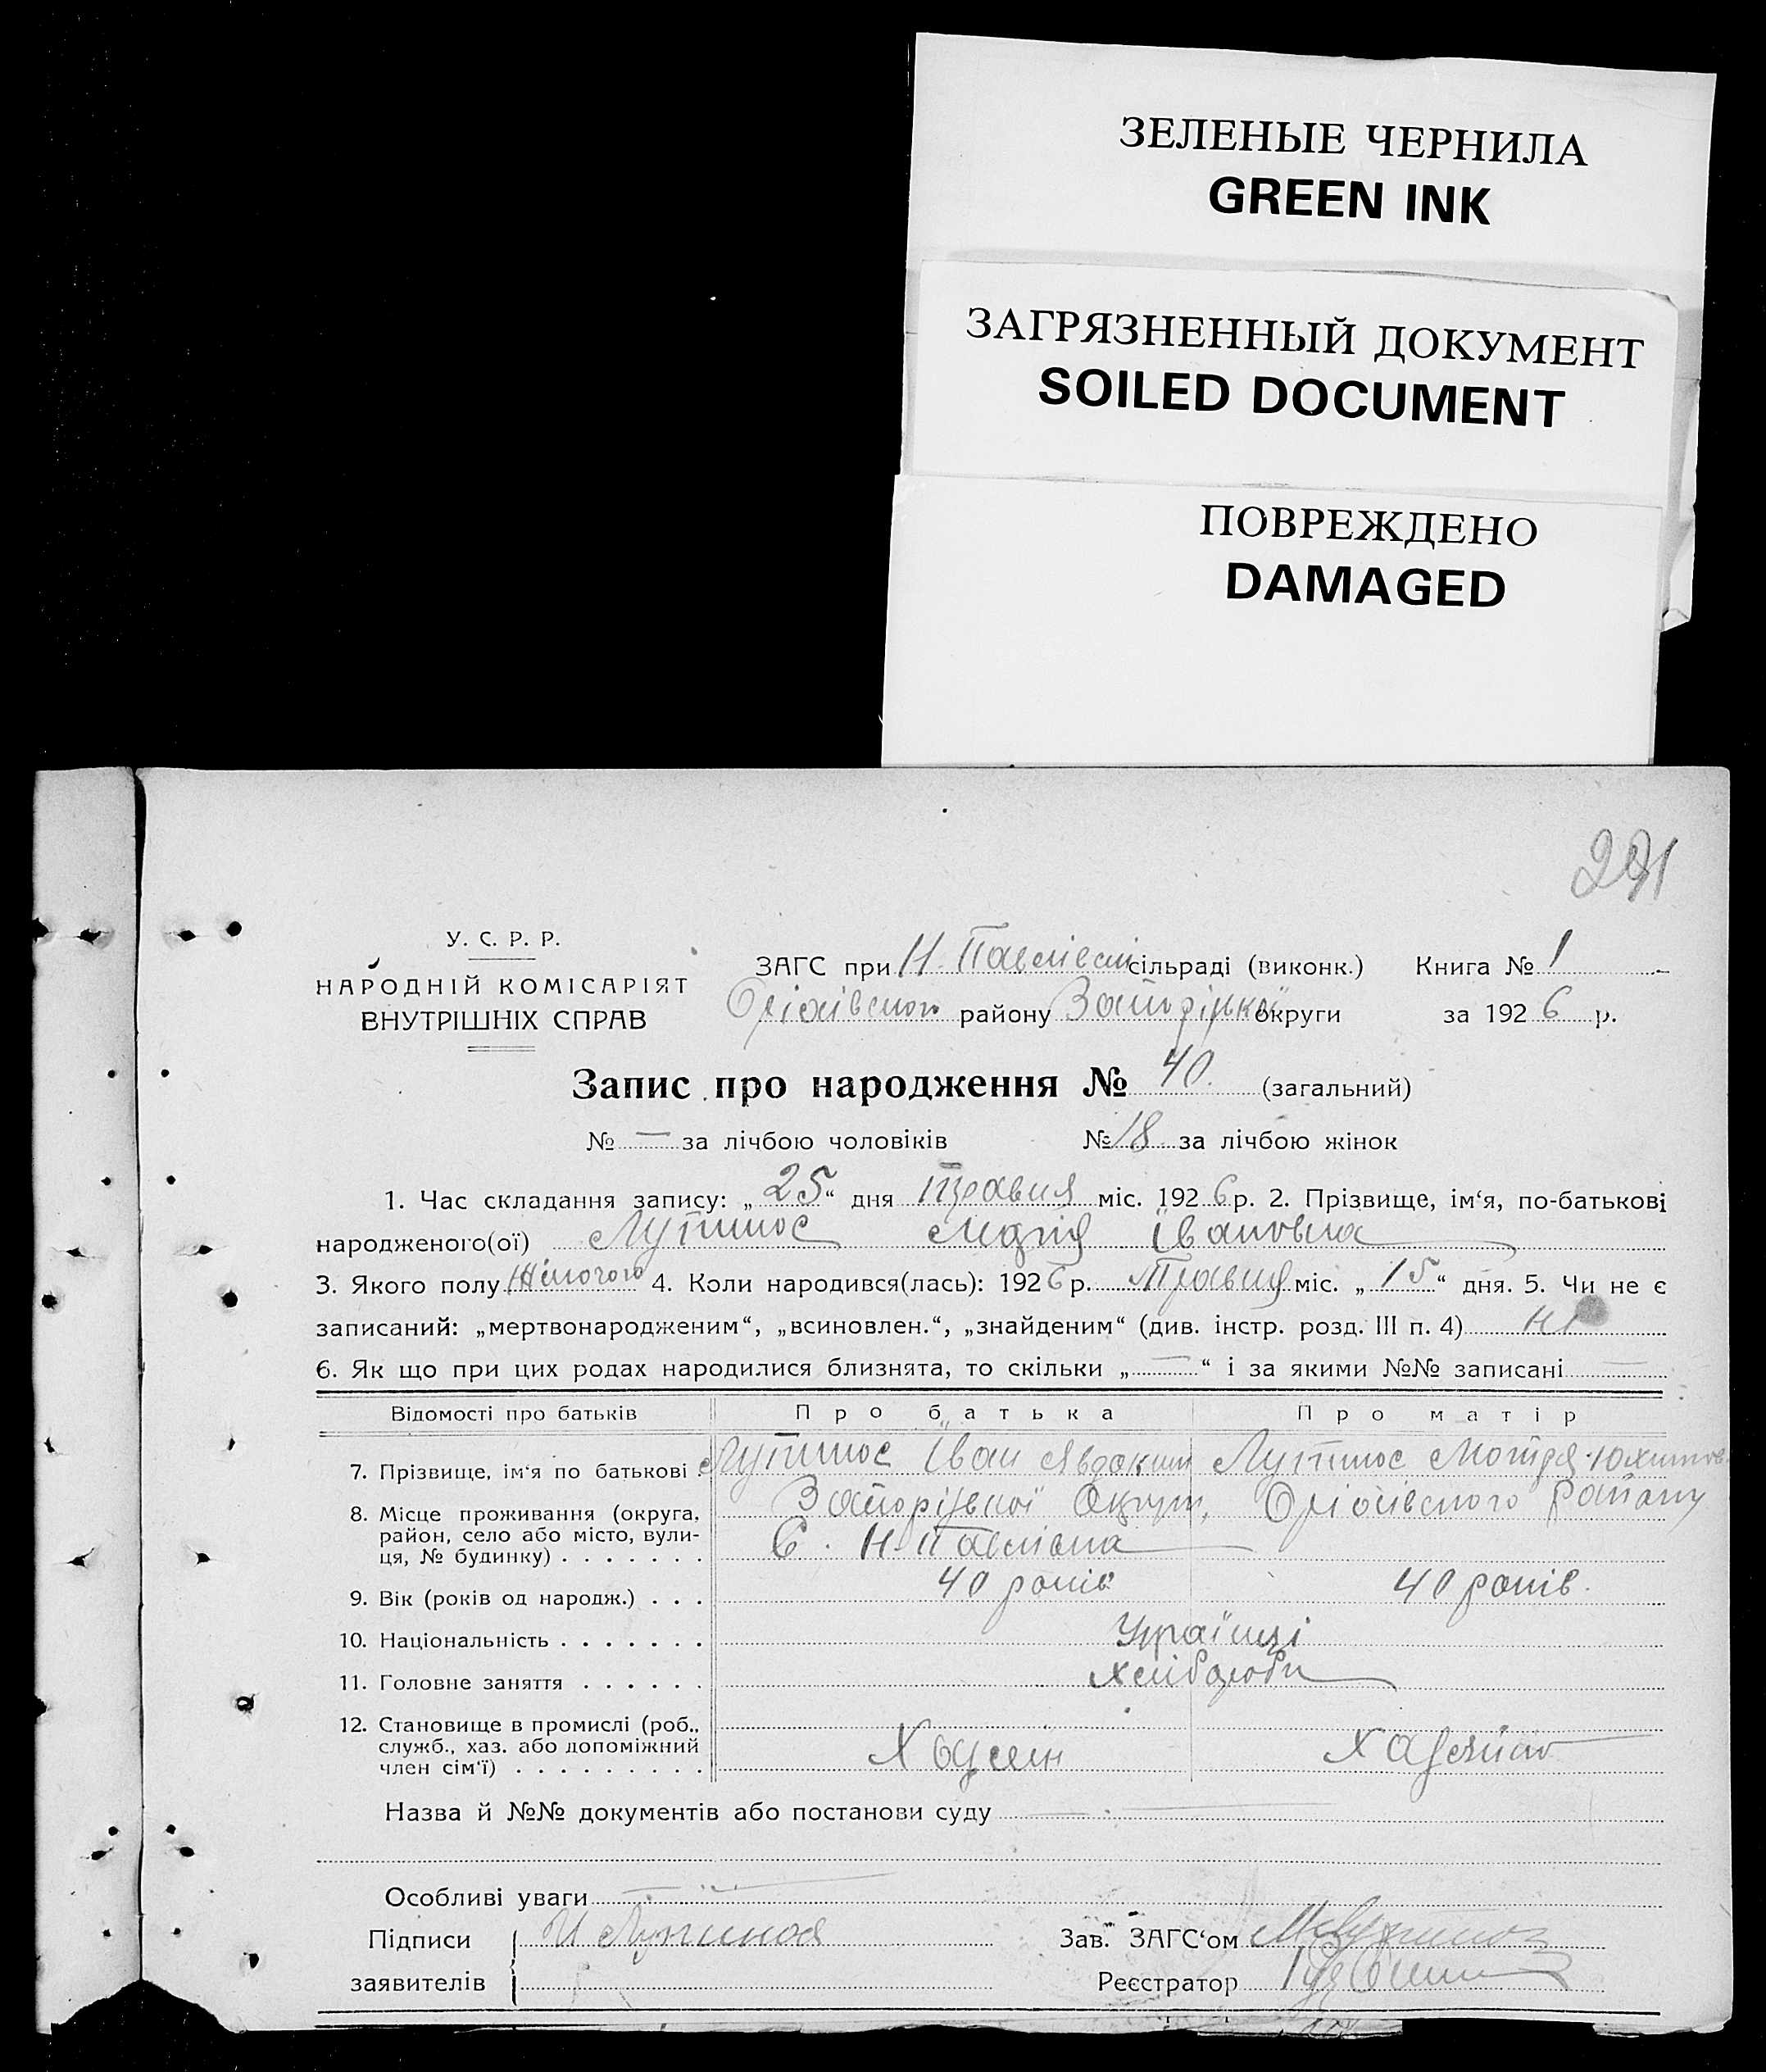 ЗЕЛЕНЫЕ ЧЕРНИЛА
GREEN INK
ЗАГРЯЗНЕННЫЙ ДОКУМЕНТ
SOILED DOCUMENT
ПОВРЕЖДЕНО
DAMAGED
У. С. Р. Р.
НАРОДНІЙ КОМІСАРІЯТ
ВНУТРІШНІХ СПРАВ
ЗАГС при Н. Павлівськ сільраді (виконк.) Книга № 1
Оріхівского району Запоріжкої округи за 1926 р.
Запис про народження № 40. (загальний)
№ — за лічбою чоловіків № 18 за лічбою жінок
1. Час складання запису: „25“ дня травня міс. 1926 р. 2. Прізвище, ім‘я, по-батькові
народженого(ої) Марія Івановна
3. Якого полу Жіночого 4. Коли народився(лась): 1926 р. Травня міс. „15“ дня. 5. Чи не є
записаний: „мертвонародженим“, „всиновлен.“, „знайденим“ (див. інстр. розд. III п. 4) Ні
6. Як що при цих родах народилися близнята, то скільки „—“ і за якими №№ записані —
Відомості про батьків Про батька Про матір
7. Прізвище, ім‘я по батькові Іван Мотря
8. Місце проживання (округа, район, село або місто, вулиця, № будинку) Запоріжської Округи, Оріхівского Району
С. Н-Павлівка
9. Вік (років од народж.) 40 років 40 років.
10. Національність Українці
11. Головне заняття Хліброби
12. Становище в промислі (роб., служб., хаз. або допоміжний член сім‘ї) Хазяїн Хазяйка
Назва й №№ документів або постанови суду —
Особливі уваги —
Підписи
заявителів
Зав. ЗАГС‘ом
Реєстратор